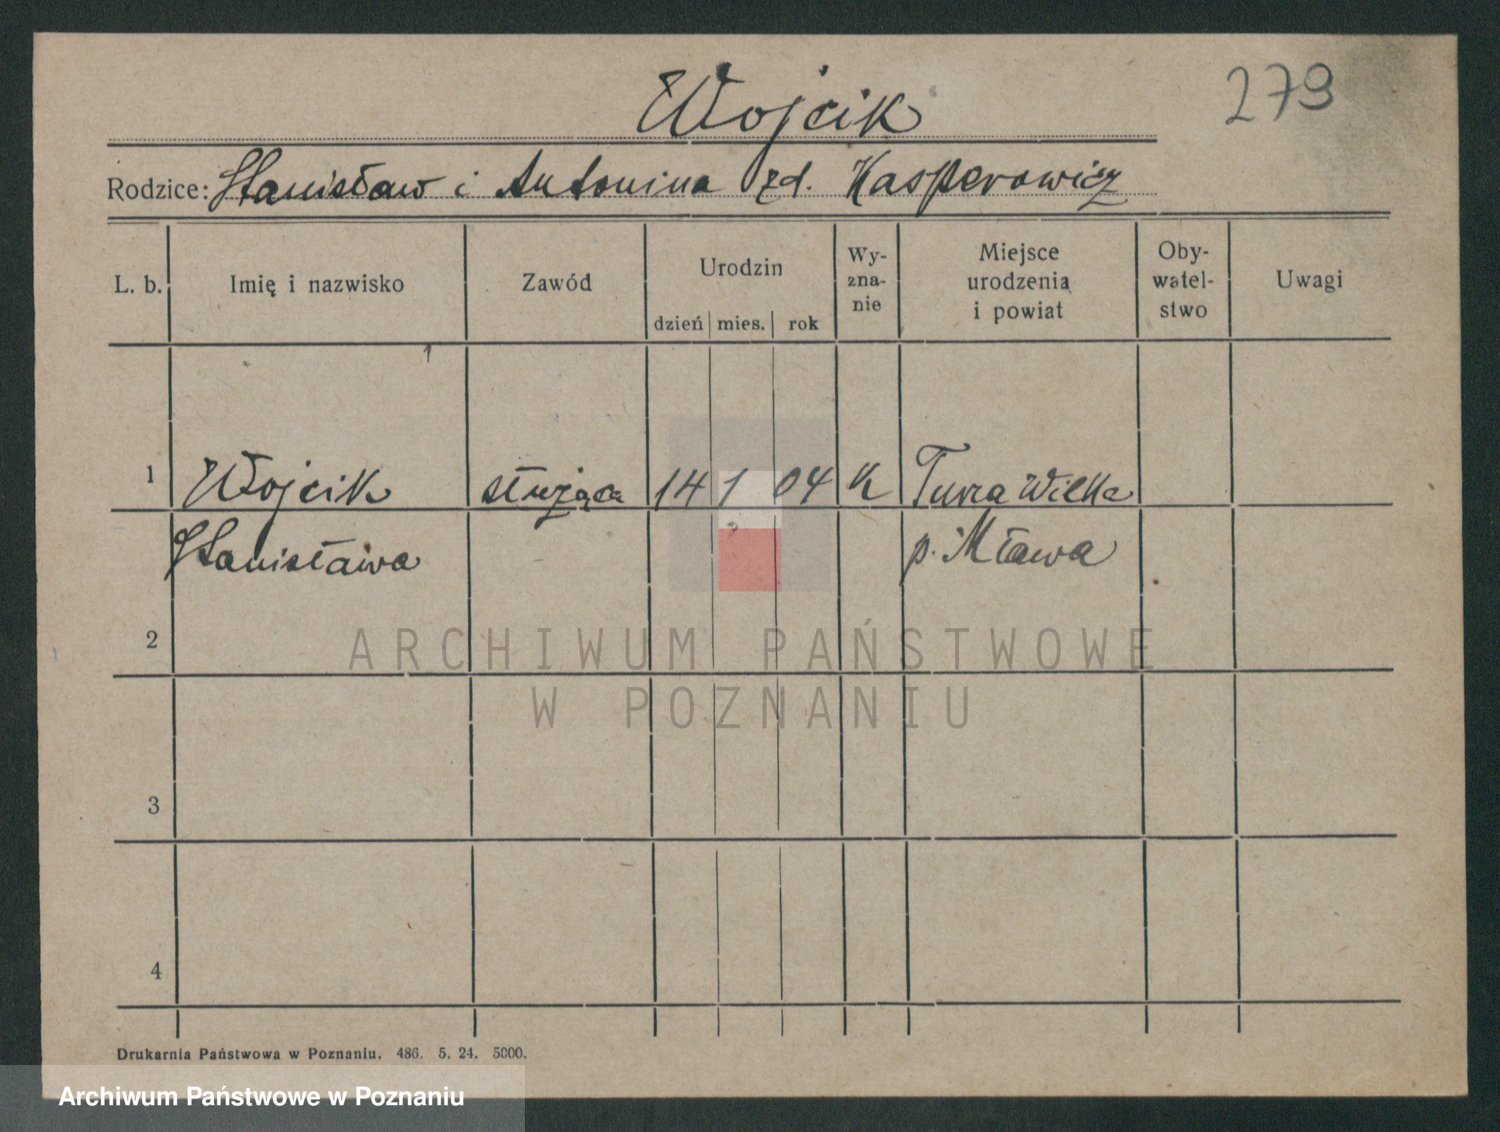 Wojcik
279
Rodzice: Stanisław i Antonina zd. Kasperowicz
L. b.
Imię i nazwisko
Zawód
Urodzin
dzień mies. rok
Wy-
zna-
nie
Miejsce
urodzenia
i powiat
Oby-
watel-
stwo
Uwagi
1 Wojcik służąca 14 1 04 K Turza Wielka
Stanisława p. Mława
2
ARCHIWUM PAŃSTWOWE
W POZNANIU
3
4
Drukarnia Państwowa w Poznaniu. 486. 5. 24. 5000.
Archiwum Państwowe w Poznaniu